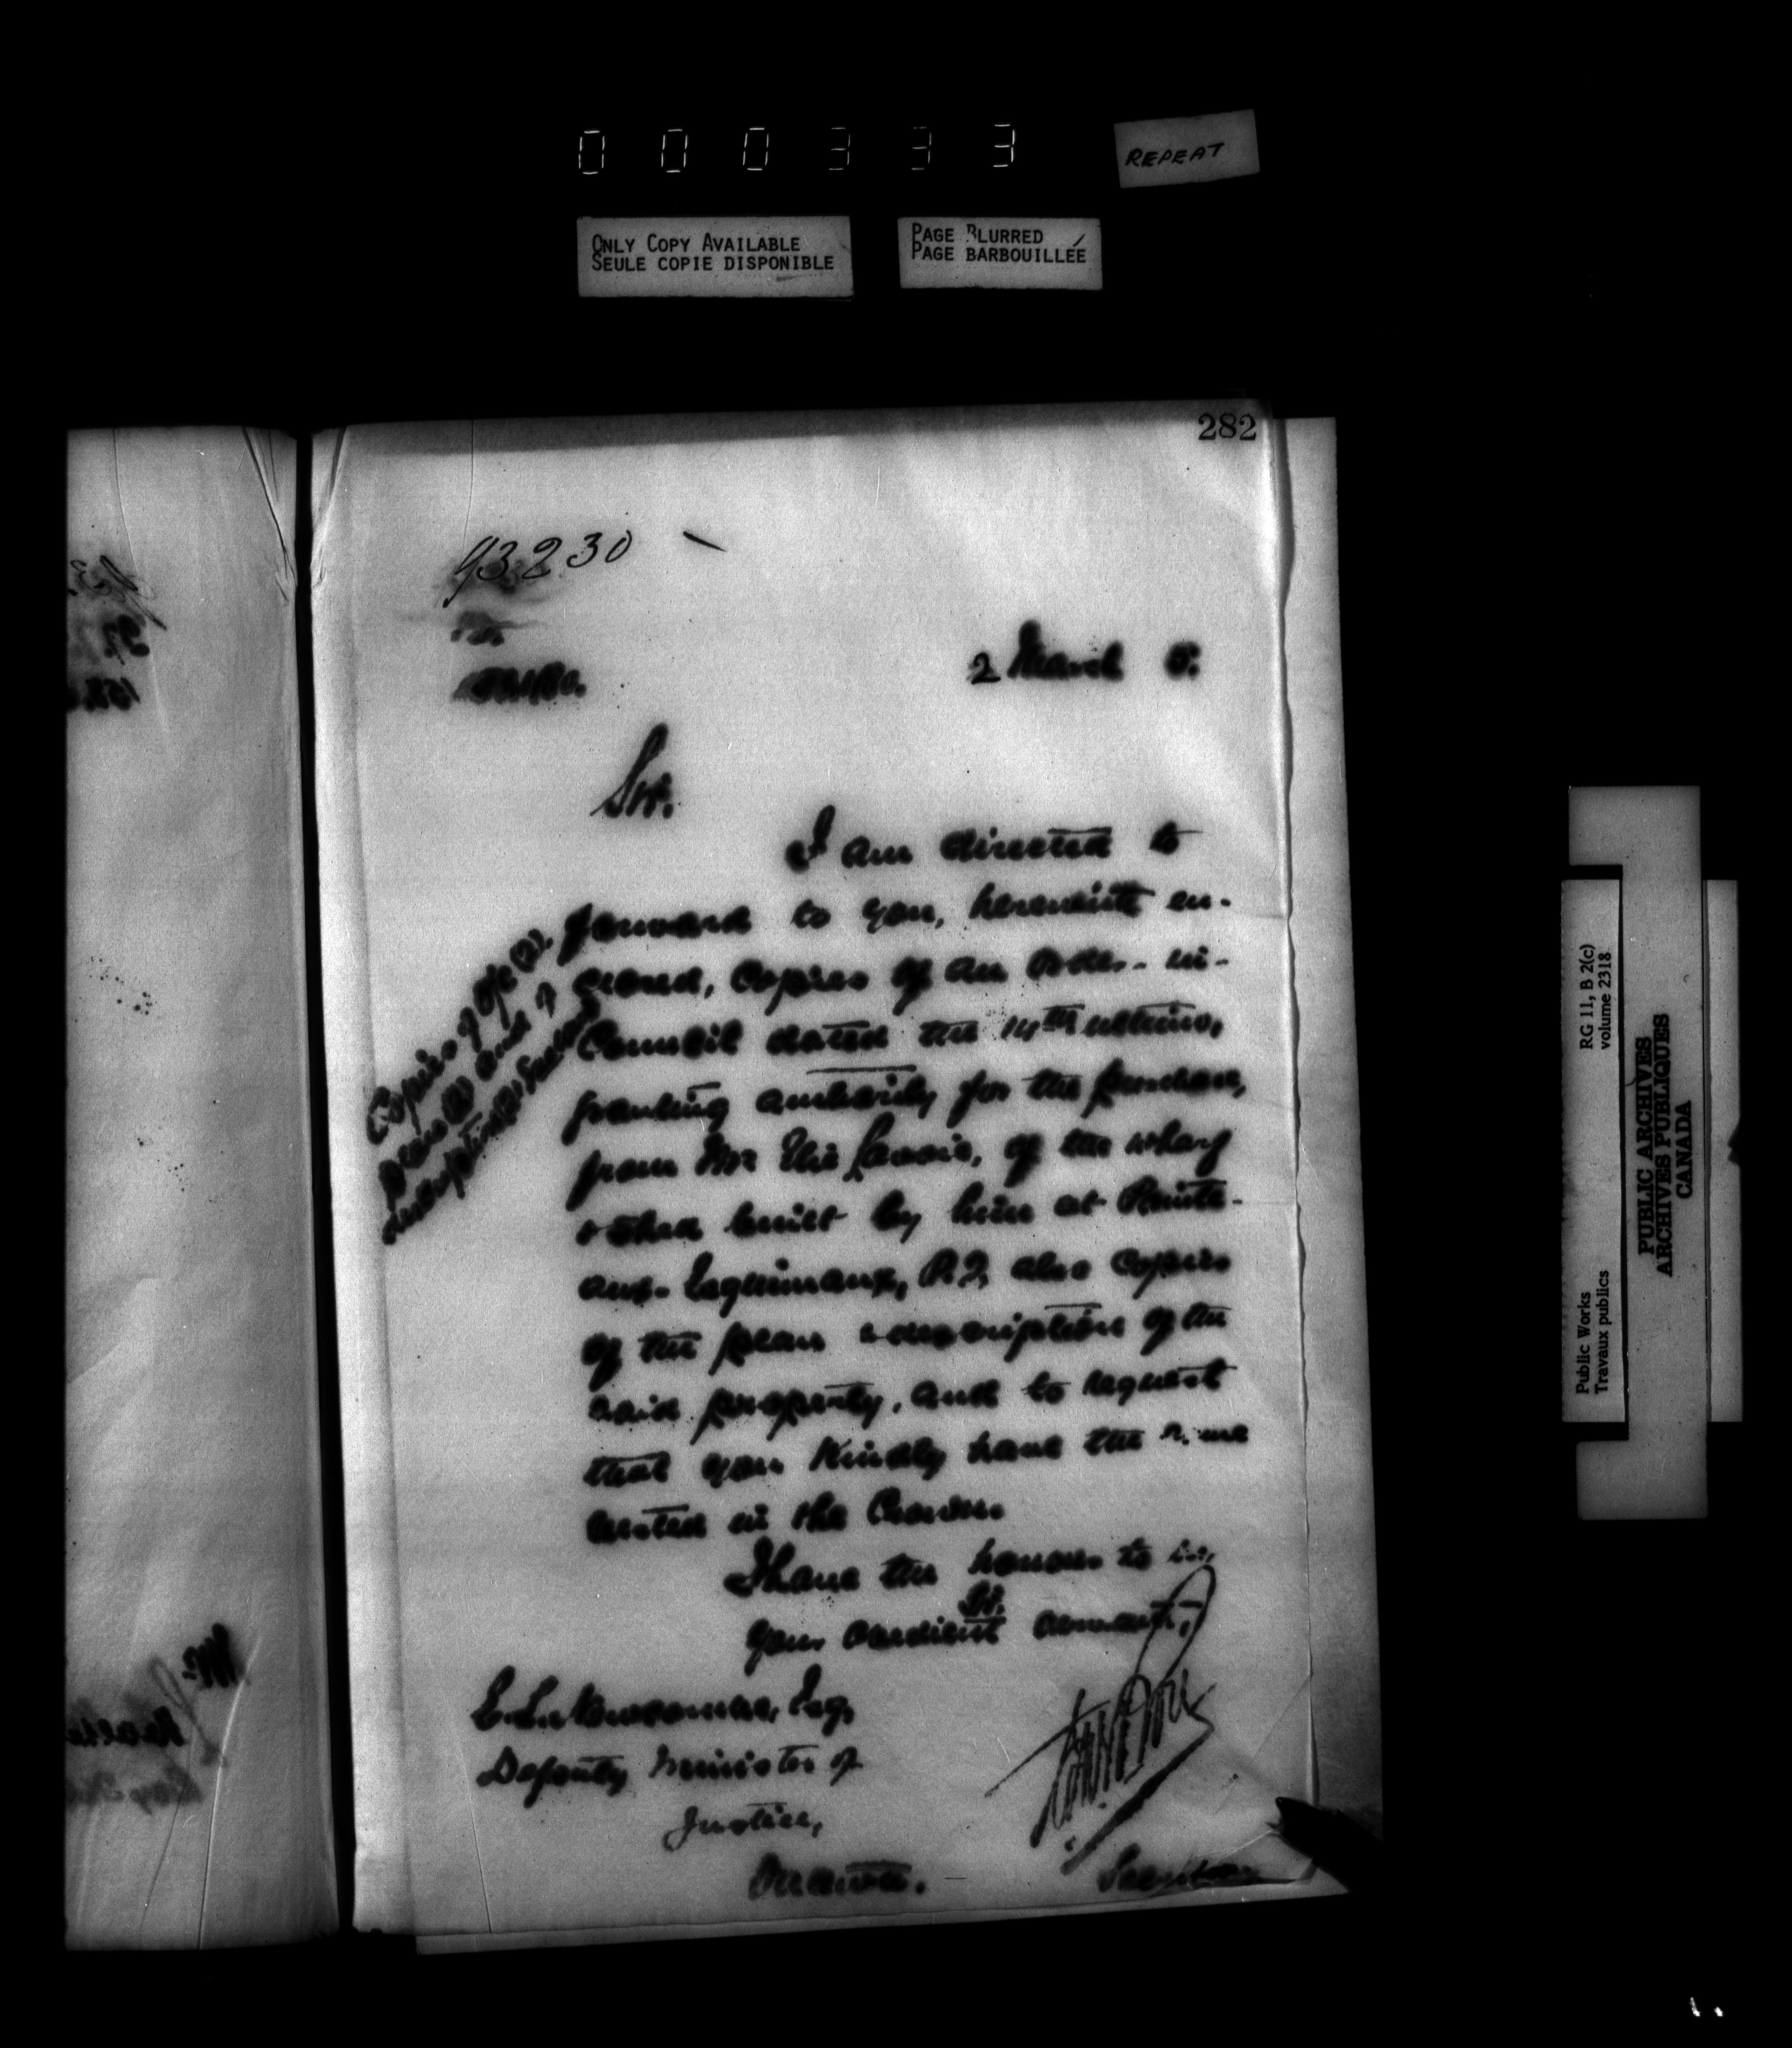 000333
REPEAT
ONLY COPY AVAILABLE
SEULE COPIE DISPONIBLE
PAGE BLURRED
PAGE BARBOUILLÉE
282
93230
2 March 5.
Sir.
I am directed to
forward to you, herewith en-
closed, copies of an Order-in-
Council dated the 14th ultimo,
granting authority for the purchase,
from Mr Elie Lavoie, of the wharf
& shed built by him at Pointe-
aux-Esquimaux, P.Q. also copies
of the plan & description of the
said property, and to request
that you kindly have the same
vested in the Crown.
I have the honour to be,
Sir.
Your obedient servant,
Copies of O/C (2).
plan (2) and of
description (2) enclosed
E. L. Newcombe, Esq,
Deputy Minister of
Justice,
Ottawa.
Secretary
Public Works
Travaux publics
RG 11, B 2(c)
volume 2318
PUBLIC ARCHIVES
ARCHIVES PUBLIQUES
CANADA